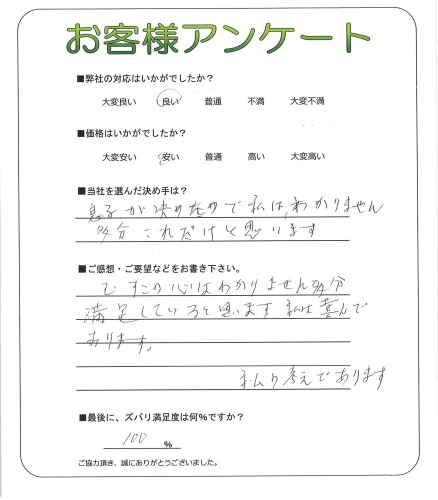 お客様アンケート
■弊社の対応はいかがでしたか?
大変良い 良い 普通 不満 大変不満
■価格はいかがでしたか?
大変安い 安い 普通 高い 大変高い
■当社を選んだ決め手は?
息子が決めたので私は、わかりません
多分これだけと思います
■ご感想・ご要望などをお書き下さい。
むすこの心はわかりません多分
満足していると思います 私は喜んで
おります。
私の考えであります
■最後に、ズバリ満足度は何%ですか?
100 %
ご協力頂き、誠にありがとうございました。